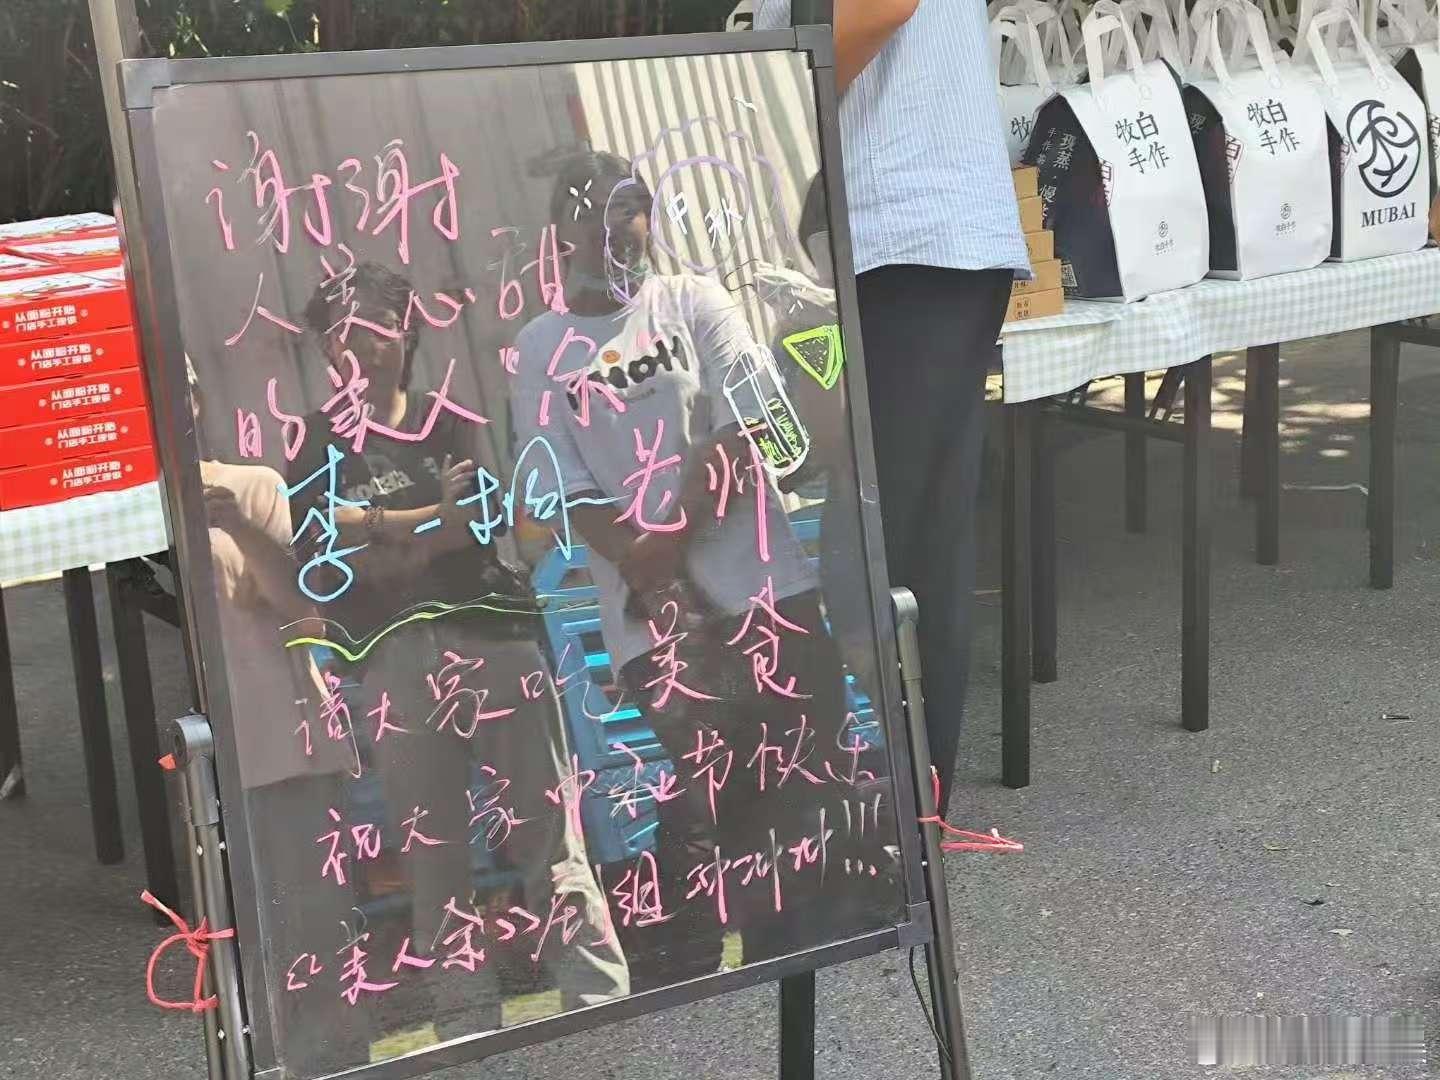 谢谢
人美心甜
的美人“余”
李一桐老师
请大家吃美食
祝大家中秋节快乐
《美人余》剧组冲冲冲!!!
中秋
从面粉开始
门店手工现做
从面粉开始
门店手工现做
从面粉开始
门店手工现做
从面粉开始
门店手工现做
从面粉开始
门店手工现做
牧白
手作
牧白手作
现蒸
牧白
手作
MUBAI